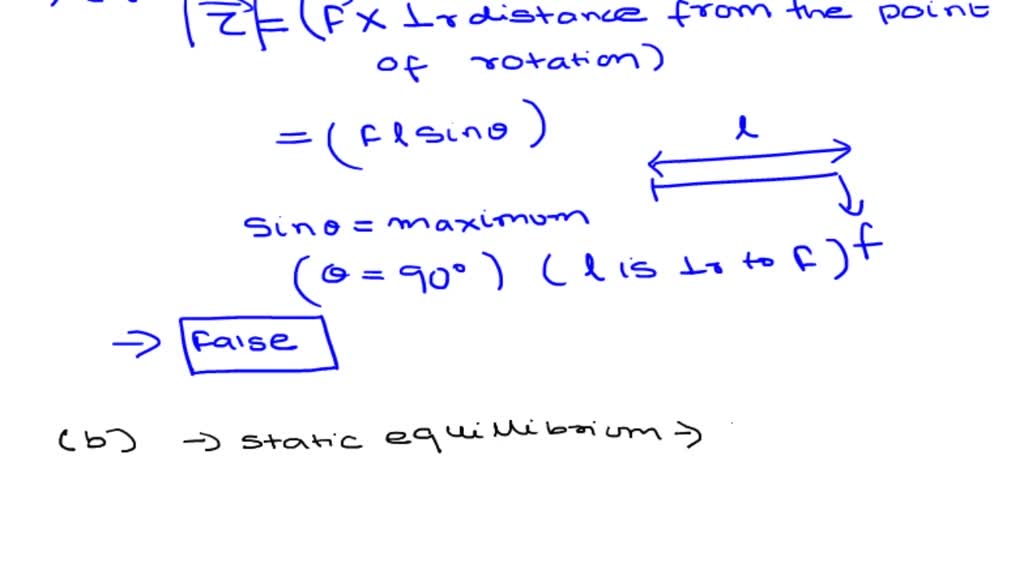 |τ⃗| = (F × ⊥r distance from the point
of rotation)
= (F l sinθ)
l
sinθ = maximum
(θ = 90°) (l is ⊥r to F)
f
→ False
(b) → static equillibrium →